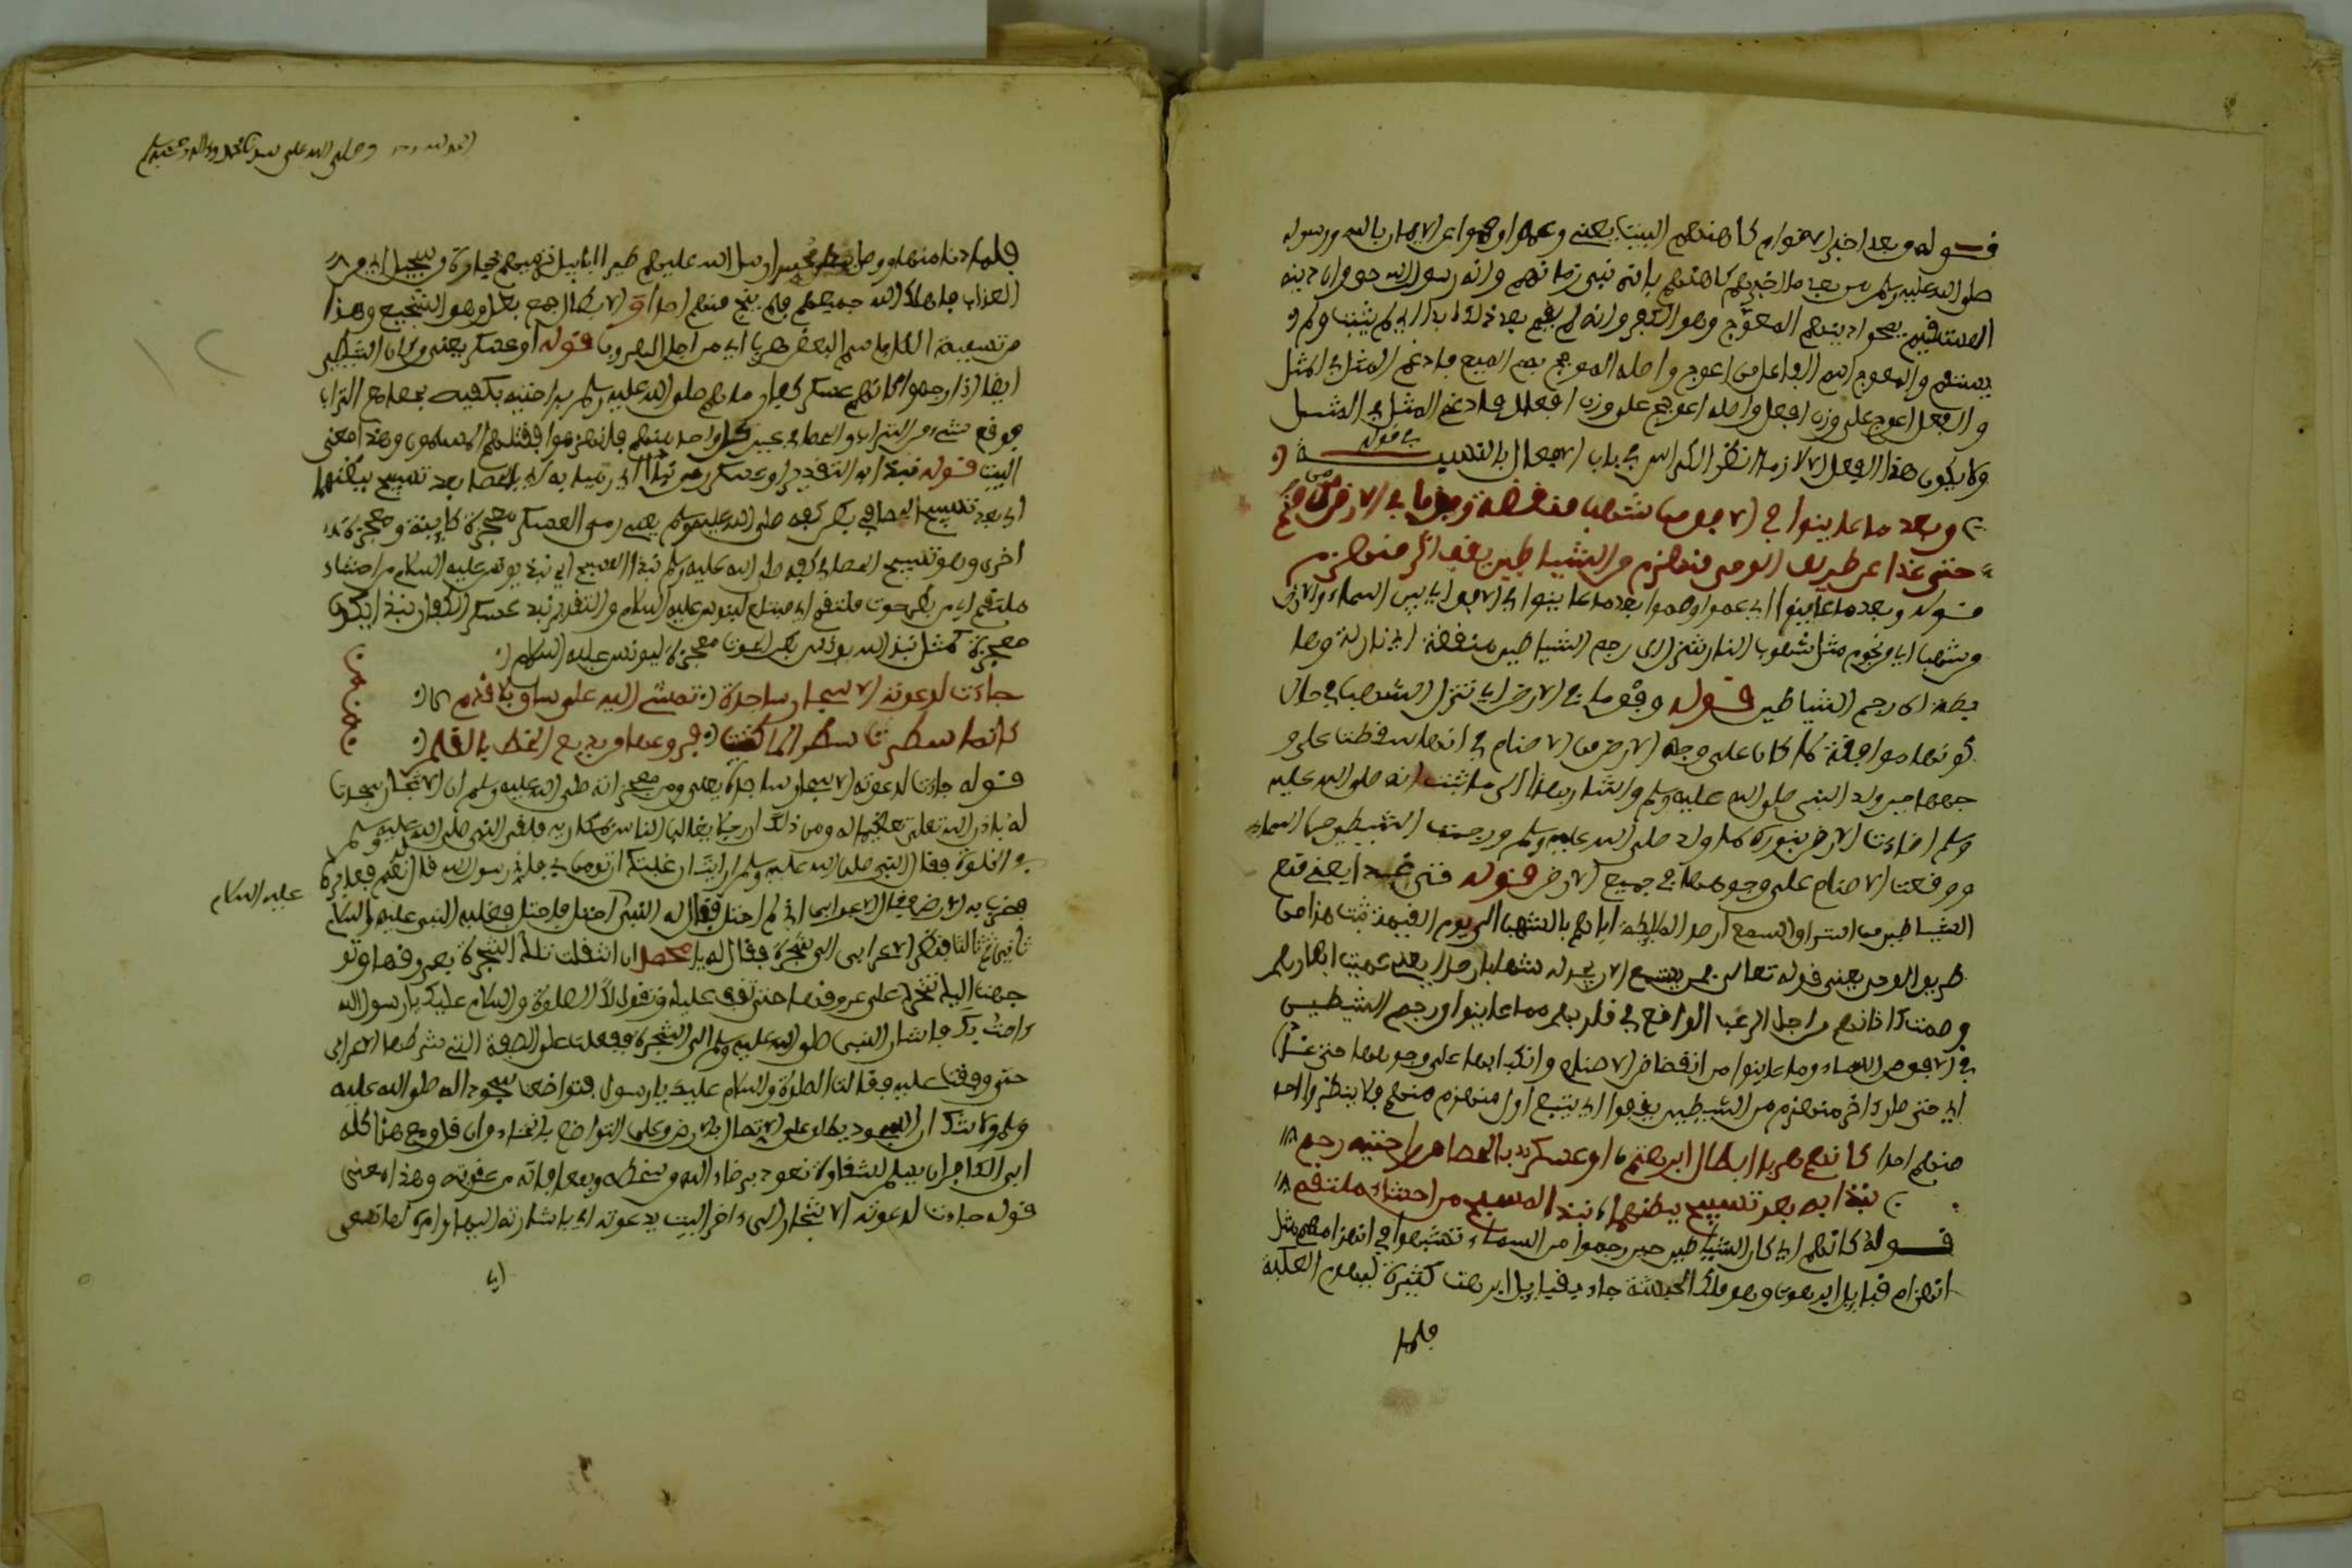 قوله وبعد اخبر الاقوام كاهنهم البيت يعنى وعموا وصموا عن الايمان بالله ورسوله
صلى الله عليه وسلم من بعد ما اخبرهم كاهنهم بانه نبى زمانهم وانه رسول الله حق وان دينه
المستقيم يمحوا دينهم المعوج وهو الكفر وانه لم يقم بعد ذلك ابدا اي لم يثبت ولم
يستقم والمعوج اسم الفاعل من اعوج واصله المعوجج بضم الميم فادغم المثل في المثل
والفعل اعوج على وزن افعل واصله اعوجج على وزن افعلل فادغم المثل في المثل
ولا يكون هذا الفعل الا لازما انظر المكراس في باب الافعال
وبعد ما عاينوا في الافق من شهب منقضة وفق ما في الارض من صنم
حتى غدا عن طريق الوحى منهزم من الشياطين يقفو اثر منهزم
قوله وبعد ما عاينوا اي عموا وصموا بعد ما عاينوا في الافق اي بين السماء والارض
وشهبا اي من نجوم مثل شهوب النار الى رجم الشياطين منقضة اي نازلة
الى رجم الشياطين قوله وفق ما في الارض اي تنزل الشهب في حال
كونها موافقة لما كان على وجه الارض من الاصنام في انها سقطت على و
جهها حين ولد النبى صلى الله عليه وسلم واشار بهذا الى ما ثبت انه صلى الله عليه
وسلم اضاءت الارض بنوره لما ولد صلى الله عليه وسلم ورجمت الشيطين من السماء
ووقعت الاصنام على وجوهها في جميع الارض قوله حتى غدا يعنى منع
الشياطين من استراق السمع الى يوم القيمة
طريق الوحى يعنى قوله تعالى فمن يستمع الان يجد له شهابا رصدا يعنى عميت ابصارهم
وصمت اذانهم من اجل الرعب الواقع في قلوبهم مما عاينوا من رجم الشيطين
في الافق من السماء وما عاينوا من انقضاض الاصنام وانكبابها على وجوهها حتى غدا
اي حتى صار اخر منهزم من الشيطين يقفوا اي يتبع اول منهزم منهم فلا ينظر واحد
منهم احدا كانهم هربا ابطال ابرهة او عسكر بالحصا من راحتيه رم
نبذا به بعد تسبيح ببطنهما نبذ المسبح من احشاء ملتقم
قوله كانهم اي كان الشياطين حين رجموا من السماء تشبهوا في انهزامهم مثل
انهزام قبايل ابرهة وهو ملك الحبشة جاء بقبايل كثيرة ليهدم الكعبة
فلما
الحمد لله وحده وصلى الله على سيدنا محمد واله وصحبه وسلم
فلما دنا منها ارسل الله عليهم طيرا ابابيل ترميهم بحجارة من سجيل
العذاب فاهلك الله جميعهم فلم ينج منهم احدا والابطال جمع بطل وهو الشجيع وهذا
من تسمية الكل باسم البعض هربا اي من اجل الهروب قوله او عسكر يعنى وكان الشيطين
ايضا اذا رجموا كانهم عسكر كفار رماهم صلى الله عليه وسلم براحتيه بكفيه بحصا مع التراب
فوقع شيء من التراب والحصا في عين كل واحد منهم فانهزموا فقتلهم المسلمون وهذا معنى
البيت قوله نبذا به التقدير او عسكر رمى نبذا اي رميا به اي بالحصا بعد تسبيح ببطنهما
اي بعد تسبيح الحصا في بطن كفيه صلى الله عليه وسلم يعنى رمى العسكر معجزة كاينة ومعجزة
اخرى وهو تسبيح الحصا في كفيه صلى الله عليه وسلم نبذ المسبح اي نبذ يونس عليه السلام من احشاء
ملتقم اي من بطن حوت ملتقم اي مبتلع ليونس عليه السلام والتقدير نبذ عسكر الكفار نبذا يكون
معجزة كمثل نبذ الله يونس من بطن الحوت معجزة ليونس عليه السلام
جاءت لدعوته الاشجار ساجدة تمشى اليه على ساق بلا قدم
كانما سطرت سطرا لما كتبت فروعها من بديع الخط بالقلم
قوله جاءت لدعوته الاشجار ساجدة يعنى ومن معجزاته صلى الله عليه وسلم ان الاشجار سجدت
له باذن الله تعلى تعظيما له ومن ذلك ان رجلا يغالب الناس فلقى النبى صلى الله عليه وسلم
في الخلوة فقال النبى صلى الله عليه وسلم ارايت ان غلبتك اتومن بي فاني رسول الله قال نعم
عليه السلام
فضرب به الارض فقال الاعرابى فقال له النبى فغلبه النبى عليه السلام
ثانيا ثم ثالثا فنظر الاعرابى الى شجرة فقال له يا محمد ان اقبلت تلك الشجرة بعروقها
على عروقها حتى تقف عليك وتقول لك الصلاة والسلام عليك يارسول الله
امنت بك فاشار النبى صلى الله عليه وسلم الى الشجرة ففعلت على الصفة التى شرطها الاعرابى
حتى وقفت عليه فقالت الصلوة والسلام عليك يا رسول فتواضعا سجودا له صلى الله عليه
وسلم ولا شك ان السجود يطلق على الاتصال بالارض وعلى التواضع بالانحناء وان قل ومع هذا كله
ابى الكافر ان يسلم لشقاوة نعوذ برضاء الله من سخطه وبمعافاته من عقوبته وهذا معنى
قوله جاءت لدعوته الاشجار الى اخر البيت بدعوته اي باشارته اليها وامره لها تمشى
اي